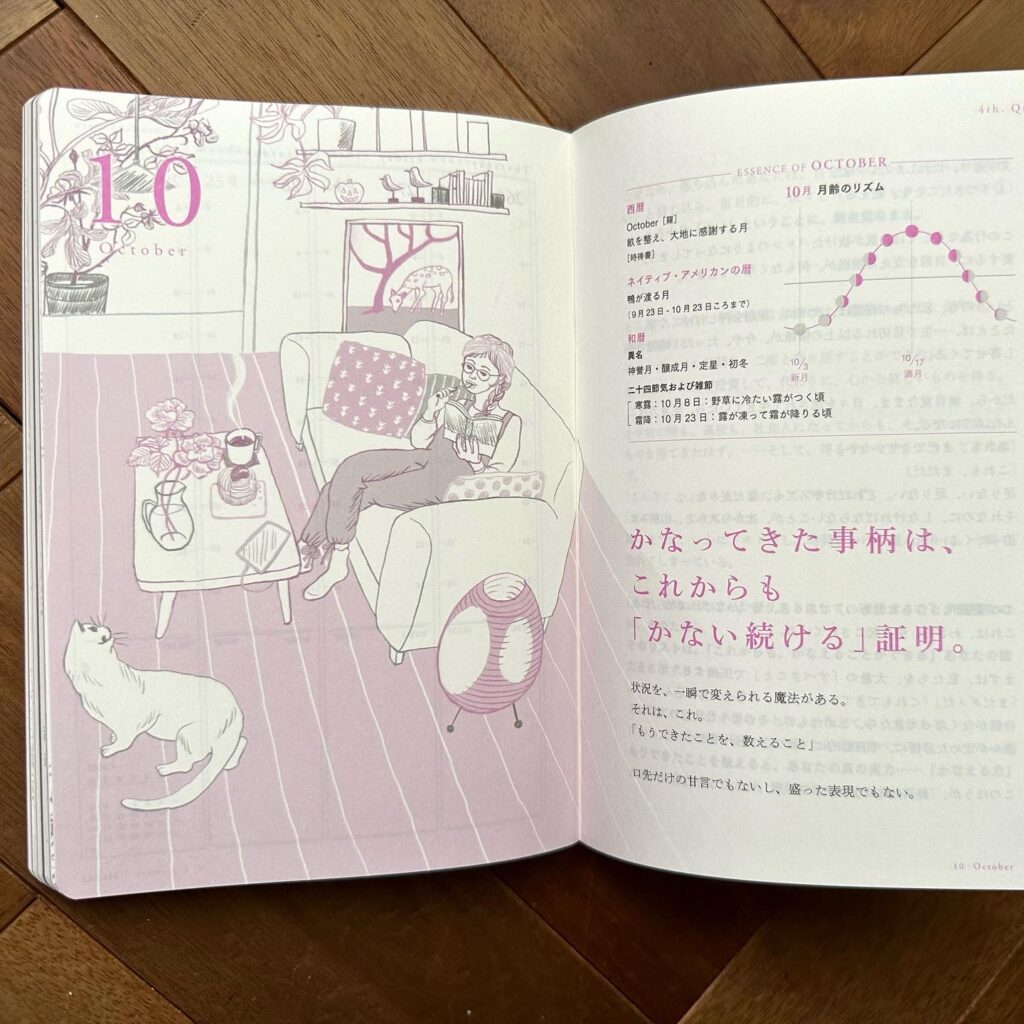 10
October
4th. Q
ESSENCE OF OCTOBER
西暦
October［羅］
畝を整え、大地に感謝する月
［時祷書］
ネイティブ・アメリカンの暦
鴨が渡る月
（9月23日 - 10月23日ころまで）
和暦
異名
神誉月・醸成月・定星・初冬
二十四節気および雑節
寒露：10月8日：野草に冷たい露がつく頃
霜降：10月23日：露が凍って霜が降りる頃
10月 月齢のリズム
10/3
新月
10/17
満月
かなってきた事柄は、
これからも
「かない続ける」証明。
状況を、一瞬で変えられる魔法がある。
それは、これ。
「もうできたことを、数えること」
口先だけの甘言でもないし、盛った表現でもない。
10 October